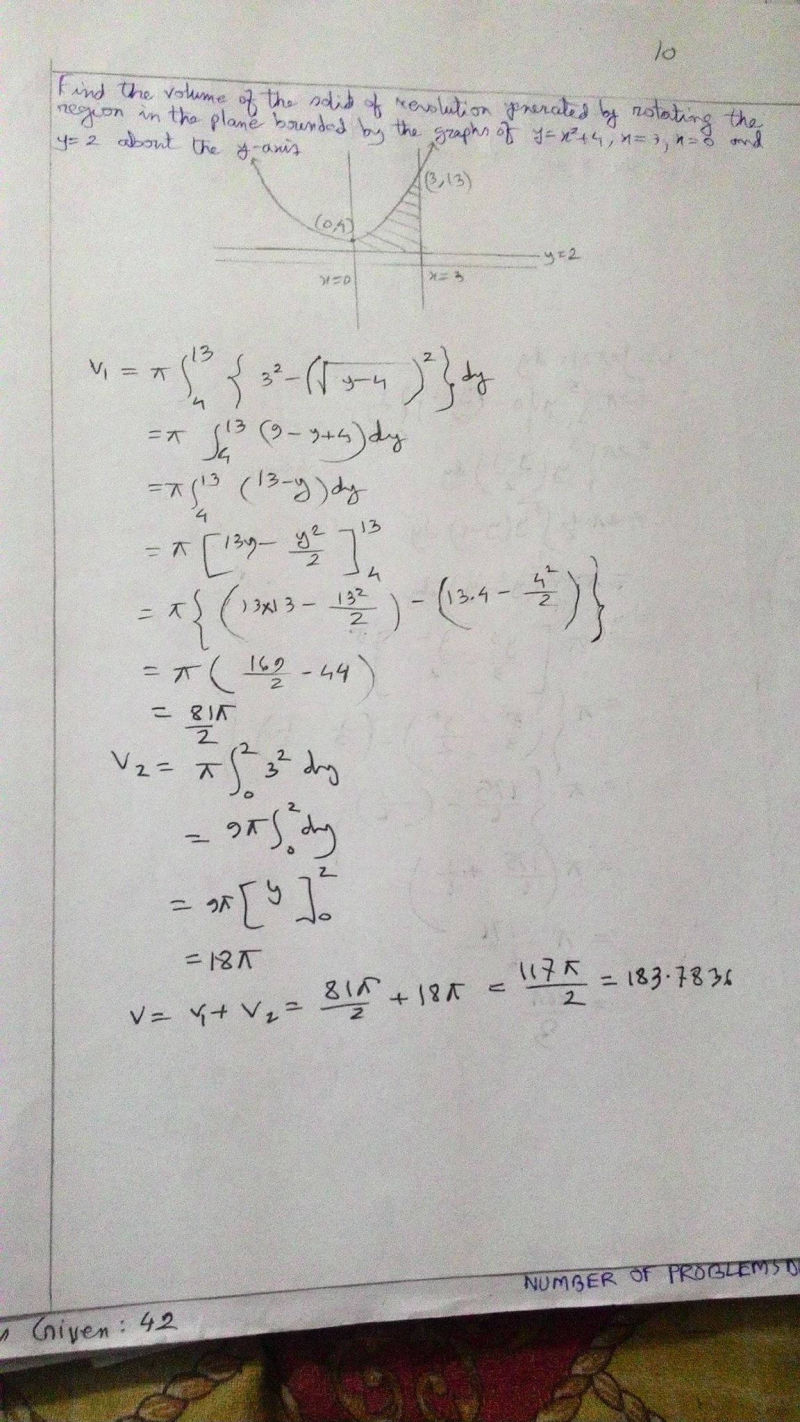 10
Find the volume of the solid of revolution generated by rotating the
region in the plane bounded by the graphs of y=x²+4, x=3, x=0 and
y=2 about the y-axis
(3,13)
(0,4)
y=2
x=0
x=3
V₁ = π ∫₄¹³ { 3² - (√(y-4))² } dy
= π ∫₄¹³ (9-y+4) dy
= π ∫₄¹³ (13-y) dy
= π [13y - y²/2]₄¹³
= π { (13×13 - 13²/2) - (13.4 - 4²/2) }
= π ( 169/2 - 44 )
= 81π/2
V₂ = π ∫₀² 3² dy
= 9π ∫₀² dy
= 9π [y]₀²
= 18π
V = V₁ + V₂ = 81π/2 + 18π = 117π/2 = 183.7836
NUMBER OF PROBLEMS
Given: 42